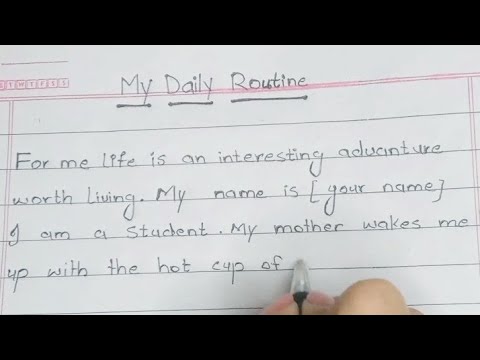 My Daily Routine
For me life is an interesting advanture
worth Living. My name is [your name]
I am a student. My mother wakes me
up with the hot cup of